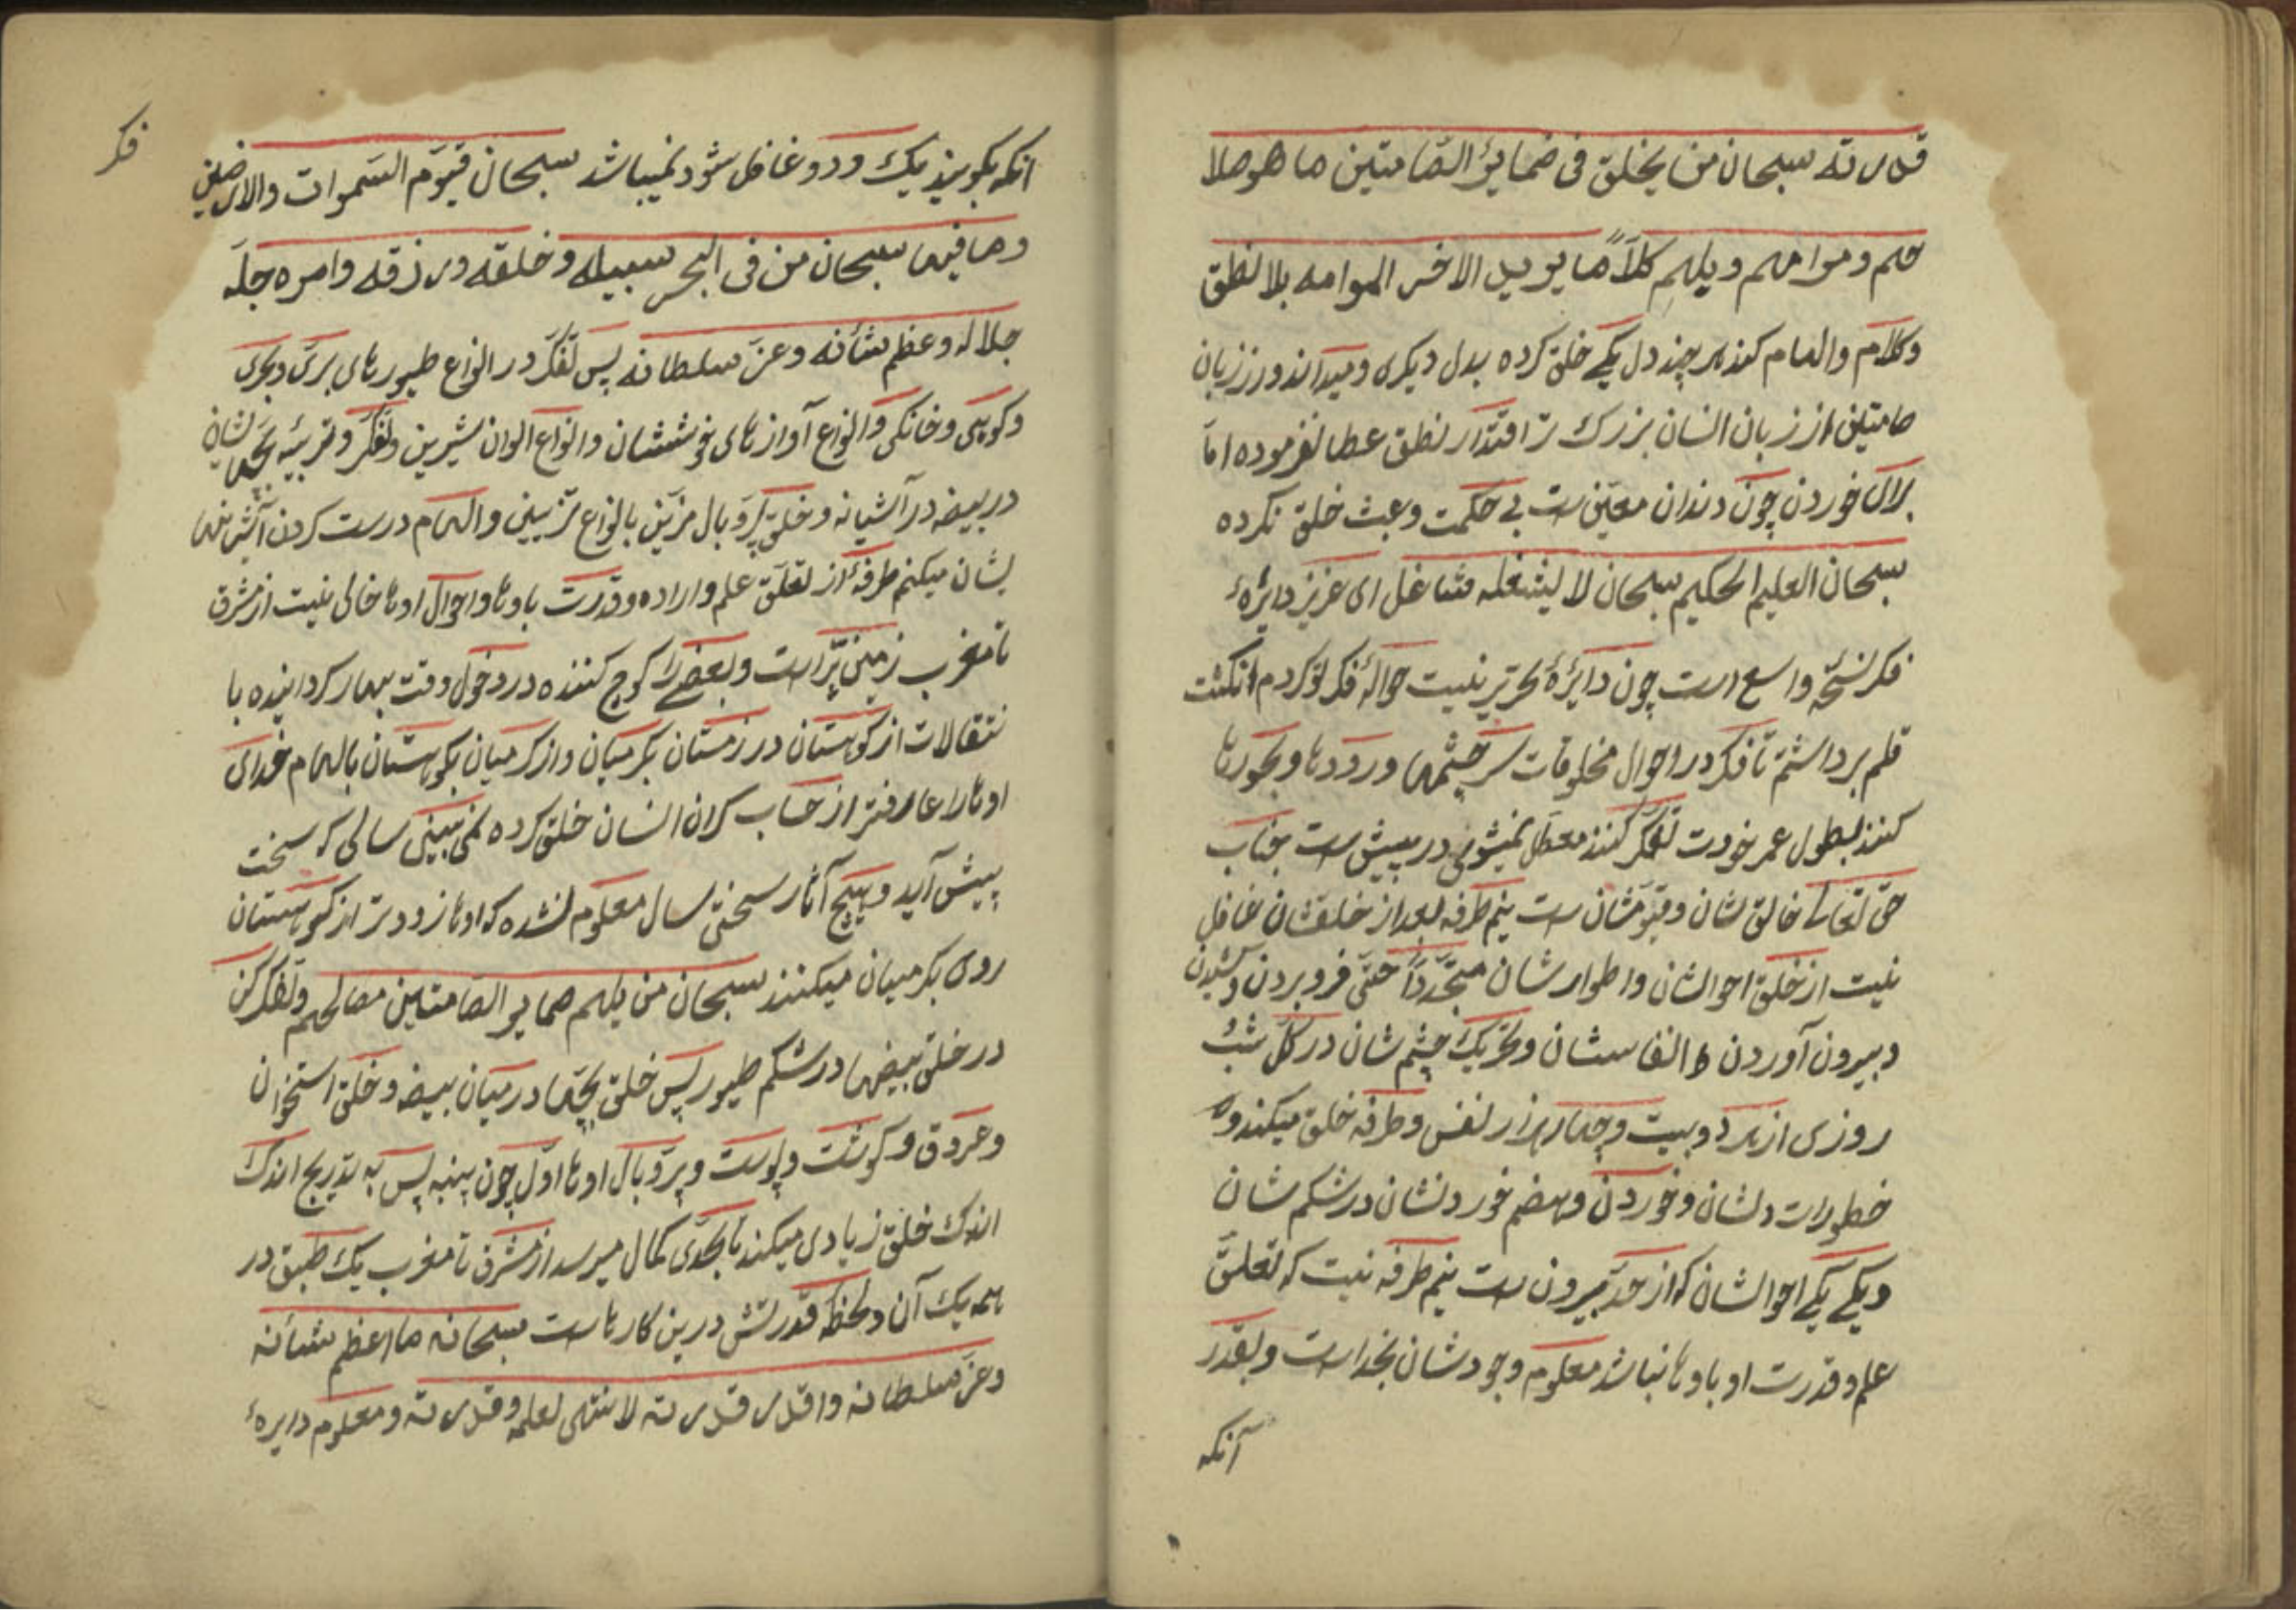 قدرته سبحان من يخلق فی ضمایر الصّامتین ما هو صلا
حهم و مرامهم و یلهم کلاًّ ما یرید الاخر المرامه بلا نطق
و کلام والهام کند هر چند دل یکی خلق کرده بدل دیکری و میداند ورز زبان
صامتین از زبان انسان بزرک تر اقتدار نطق عطا نفرموده امّا
برای خوردن چون دندان معیّن ست بی حکمت و عبث خلق نکرده
سبحان العلیم الحکیم سبحان لا یشغله مشاغل ای عزیز دایرهٔ
فکر نسخّه واسع است چون دایرهٔ تحریر نیست حوالهٔ فکر تو کردم انکشت
قلم برداشتم تا فکر در احوال مخلوقات سرچشمها و رودها و بحورها
کنند بطول عمر خودت تفکّر کنند معطّل نمیشوی در پیش ست جناب
حق تعالی خالق شان و قیّومشان ست نیم طرفه بعد از خلقشان غافل
نیست از خلق احوالشان و اطوارشان متجّدداً حتّی فرو بردن و کشیدن
و بیرون آوردن انفاسشان و تحریک چشم شان در کلّ شب
روزی از هر دو بیست و چهار هزار نفس و طرفه خلق میکند و
خطورات دلشان و خوردن و هضم خوردنشان در شکم شان
و یکی یکی احوالشان که از حدّ بیرون ست نیم طرفه نیست که تعلّق
علم و قدرت او باوها نباشد معلوم وجودشان بخداست و بقدر
آنکه
انکه بکویند یک و دو غافل شود نمیباشد سبحان قیّوم السّموات والارضین
و ما فیها سبحان من فی البحر سبیله و خلقه و رزقه و امره جلّ
جلاله و عظم شأنه و عزّ سلطانه پس تفکّر در انواع طیورهای برّی و بحری
و کوهی و خانکی و انواع آوازهای خوششان و انواع الوان شیرین و تفکّر و تربیهٔ بچّهاشان
در بیضه در آشیانه و خلق پر و بال مزیّن بانواع تزیین و الهام درست کردن آشیانها
یشان میکنم طرفهٔ از تعلّق علم و اراده و قدرت باوها و احوال اوها خالی نیست از مشرق
تا مغرب زمین پر است و بعضی را کوچ کننده در دخول وقت بهار کردانیده با
نتقالات از کوهستان در زمستان بکرمیان و از کرمیان بکوهستان بالهام خدای
اوها را عارفتر از حساب کران انسان خلق کرده نمی بینی سالی که سخت
پیش آید و هیچ آثار سختی سال معلوم نشده که اوها زودتر از کوهستان
روی بکرمیان میکنند سبحان من یلهم ضمایر الصّامتین مصالحهم و تفکّر کن
در خلق بیضها در شکم طیور پس خلق بچّها در میان بیضه و خلق استخوان
و عروق و کوشت و پوست و پر و بال اوها اوّل چون پنبه پس به تدریج اندک
اندک خلق زیادی میکند تا بحدّی کمال میرسد از مشرق تا مغرب یک طبق در
همه یک آن و لحظه قدرتش درین کارهاست سبحانه ما اعظم شأنه
و عزّ سلطانه و اقدر قدرته لا منتهی لعلمه و قدرته و معلوم دایرهٔ
فکر